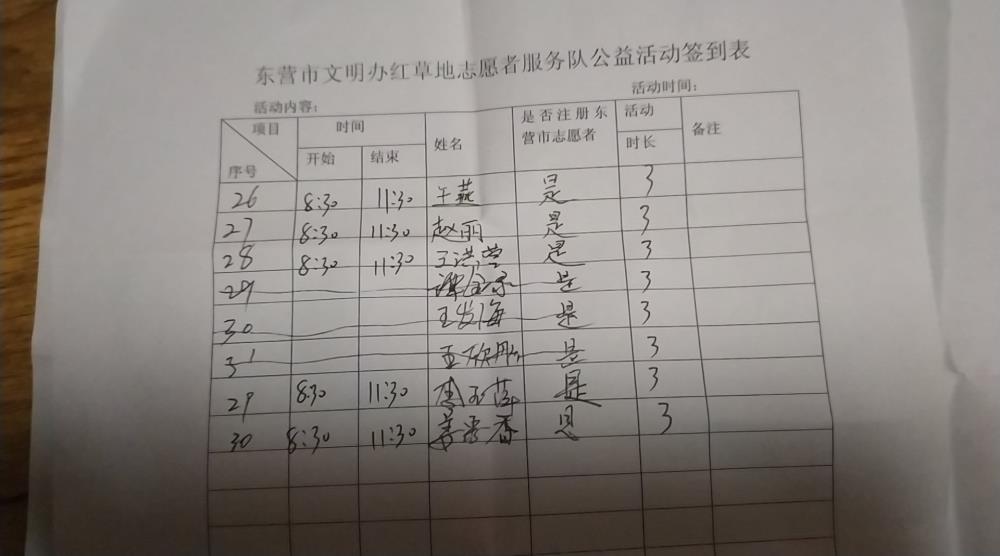 东营市文明办红草地志愿者服务队公益活动签到表
活动内容: 活动时间:
项目 时间 姓名 是否注册东营市志愿者 活动时长 备注
序号 开始 结束
26 8:30 11:30 王燕 是 3
27 8:30 11:30 赵丽 是 3
28 8:30 11:30 王洪莹 是 3
29 是 3
30 王发海 是 3
31 王欣丹 是 3
29 8:30 11:30 是 3
30 8:30 11:30 姜秀香 是 3